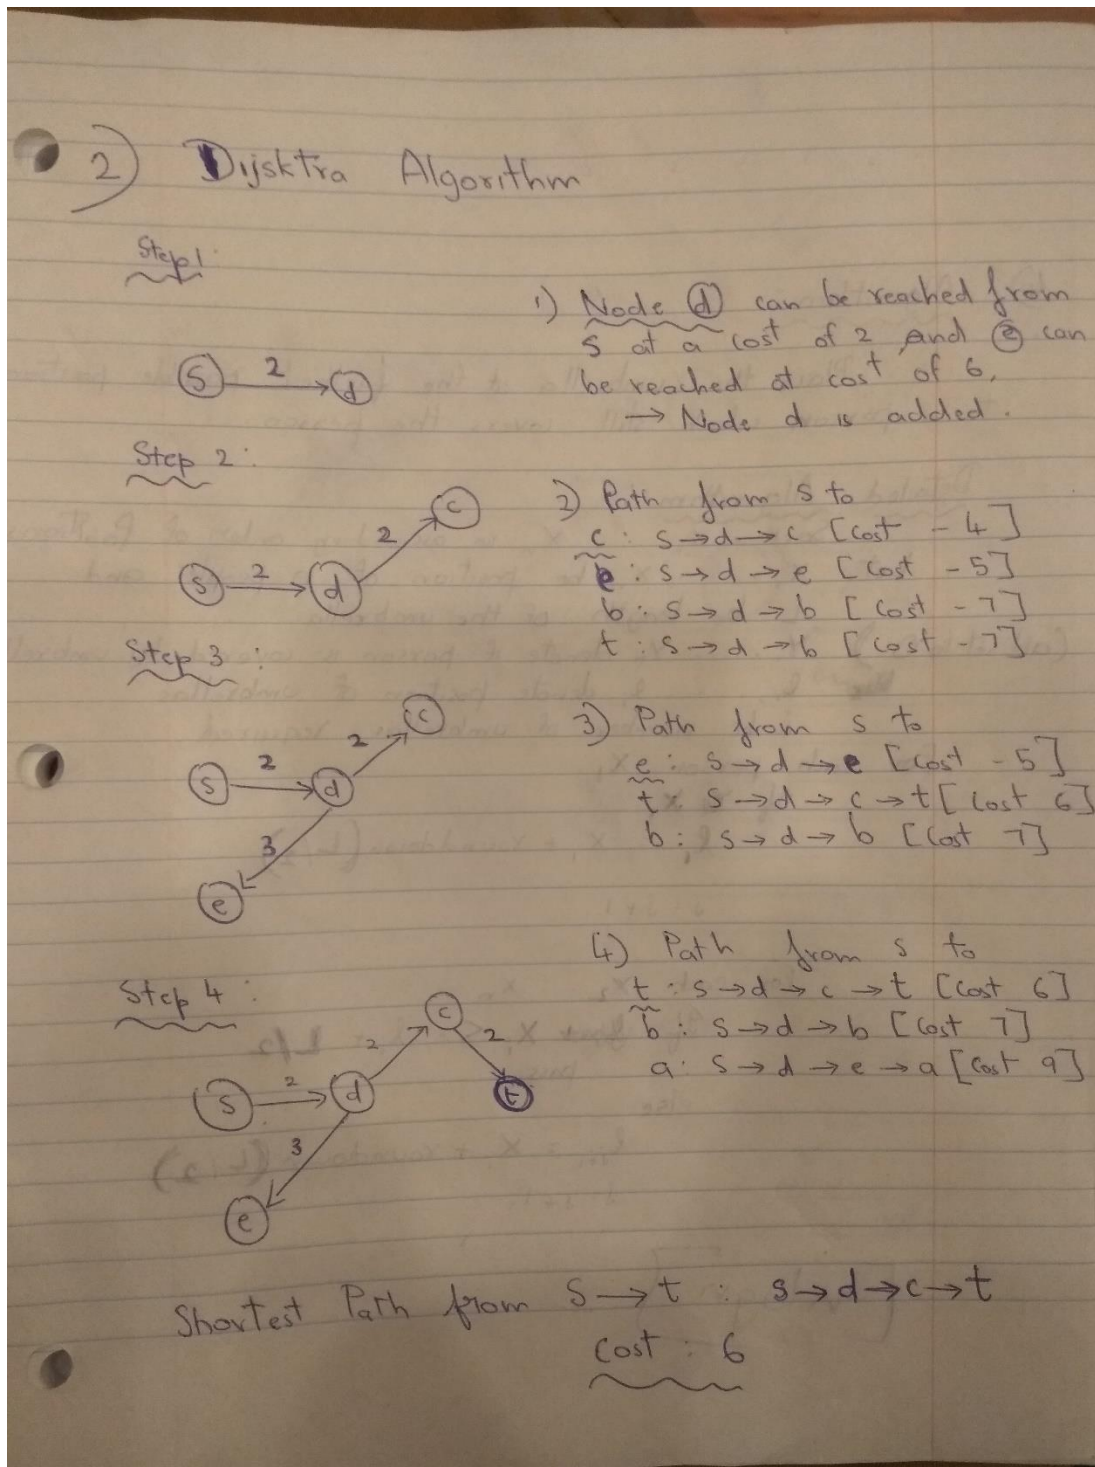 2) Dijsktra Algorithm
Step 1:
1) Node d can be reached from
s at a cost of 2 and e can
be reached at cost of 6,
→ Node d is added.
S 2 d
Step 2:
2) Path from s to
c : s → d → c [cost - 4]
e : s → d → e [cost - 5]
b : s → d → b [cost - 7]
t : s → d → b [cost - 7]
c
2
S 2 d
Step 3 :
3) Path from s to
e : s → d → e [cost - 5]
t : s → d → c → t [cost 6]
b : s → d → b [cost 7]
c
2
S 2 d
3
e
Step 4 :
4) Path from s to
t : s → d → c → t [cost 6]
b : s → d → b [cost 7]
a : s → d → e → a [cost 9]
c
2 2
S 2 d t
3
e
Shortest Path from S → t : s → d → c → t
Cost : 6